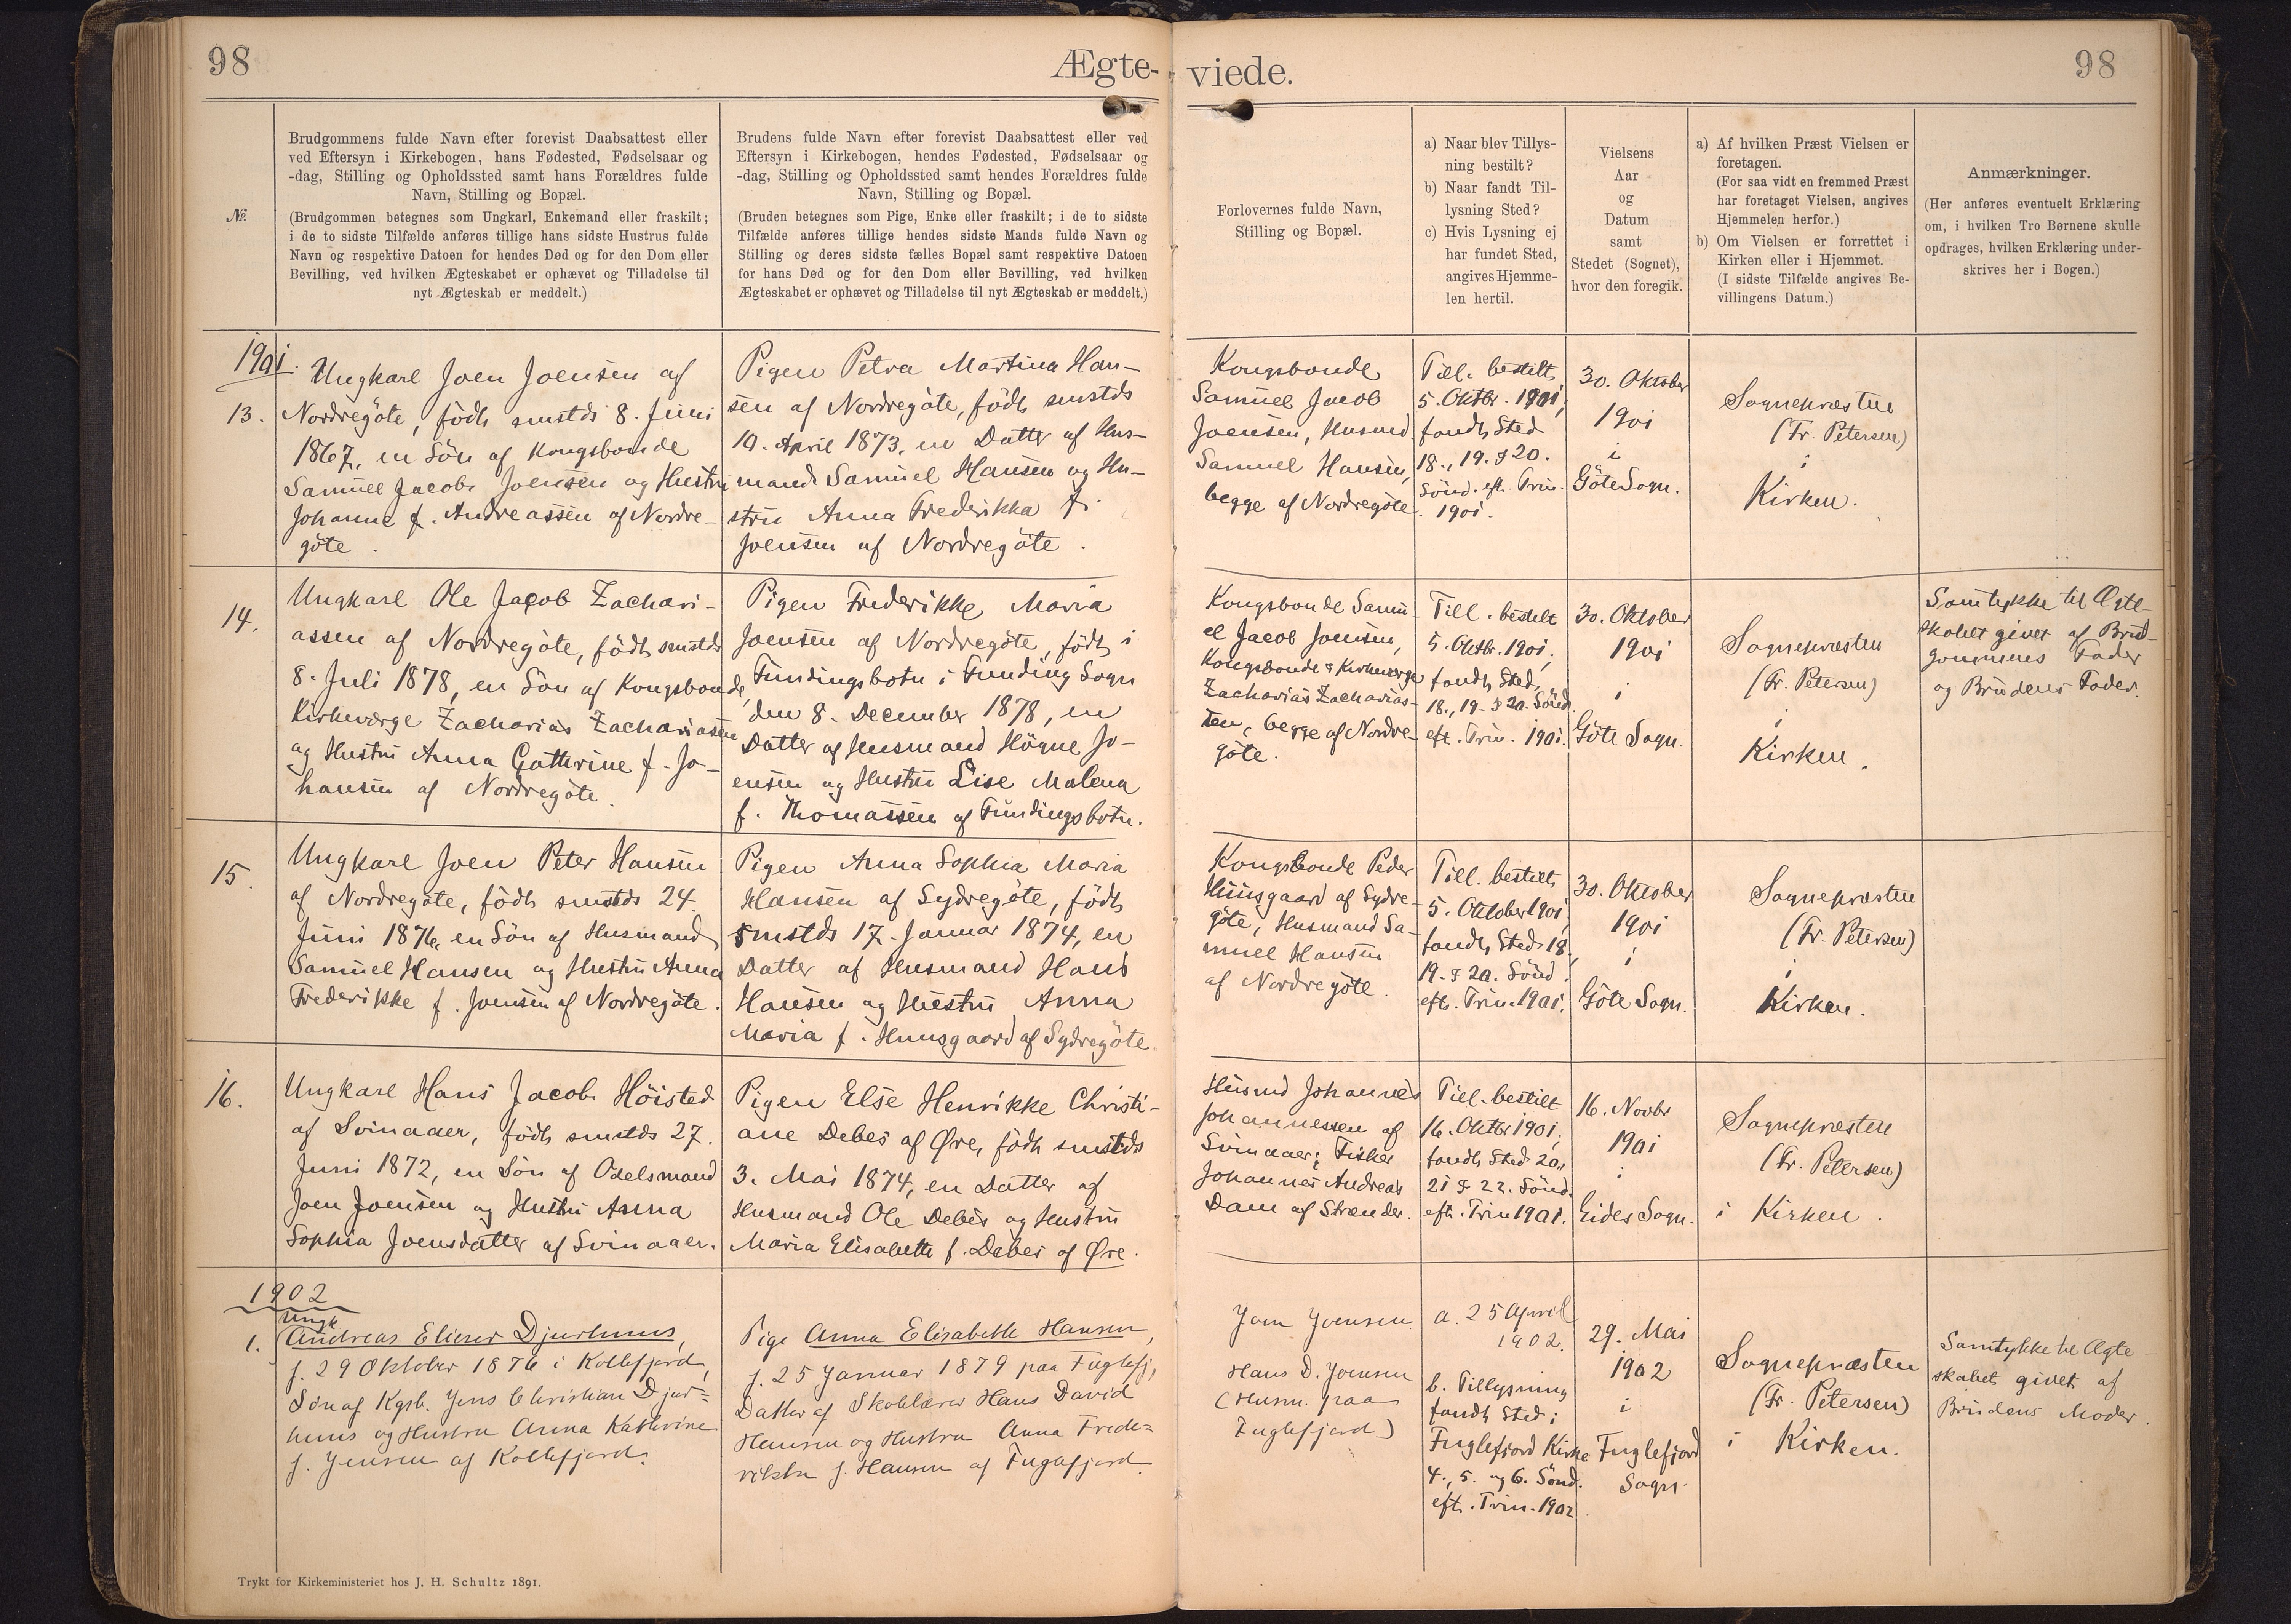 98
Ægte-
viede.
98
№.
Brudgommens fulde Navn efter forevist Daabsattest eller
ved Eftersyn i Kirkebogen, hans Fødested, Fødselsaar og
-dag, Stilling og Opholdssted samt hans Forældres fulde
Navn, Stilling og Bopæl.
(Brudgommen betegnes som Ungkarl, Enkemand eller fraskilt;
i de to sidste Tilfælde anføres tillige hans sidste Hustrus fulde
Navn og respektive Datoen for hendes Død og for den Dom eller
Bevilling, ved hvilken Ægteskabet er ophævet og Tilladelse til
nyt Ægteskab er meddelt.)
Brudens fulde Navn efter forevist Daabsattest eller ved
Eftersyn i Kirkebogen, hendes Fødested, Fødselsaar og
-dag, Stilling og Opholdssted samt hendes Forældres fulde
Navn, Stilling og Bopæl.
(Bruden betegnes som Pige, Enke eller fraskilt; i de to sidste
Tilfælde anføres tillige hendes sidste Mands fulde Navn og
Stilling og deres sidste fælles Bopæl samt respektive Datoen
for hans Død og for den Dom eller Bevilling, ved hvilken
Ægteskabet er ophævet og Tilladelse til nyt Ægteskab er meddelt.)
Forlovernes fulde Navn,
Stilling og Bopæl.
a) Naar blev Tillys-
ning bestilt?
b) Naar fandt Til-
lysning Sted?
c) Hvis Lysning ej
har fundet Sted,
angives Hjemme-
len hertil.
Vielsens
Aar
og
Datum
samt
Stedet (Sognet),
hvor den foregik.
a) Af hvilken Præst Vielsen er
foretagen.
(For saa vidt en fremmed Præst
har foretaget Vielsen, angives
Hjemmelen herfor.)
b) Om Vielsen er forrettet i
Kirken eller i Hjemmet.
(I sidste Tilfælde angives Be-
villingens Datum.)
Anmærkninger.
(Her anføres eventuelt Erklæring
om, i hvilken Tro Børnene skulle
opdrages, hvilken Erklæring under-
skrives her i Bogen.)
1901.
13.
Ungkarl Joen Joensen af
Nordregöte, födt smstds 8. Juni
1867, en Sön af Kongsbonde
Samuel Jacob Joensen og Hustru
Johanne f. Andreassen af Nordre-
göte.
Pigen Petra Martina Han-
sen af Nordregöte, födt smstds
10. April 1873, en Datter af Hus-
mand Samuel Hansen og Hu-
stru Anna Frederikka f.
Joensen af Nordregöte.
Kongsbonde
Samuel Jacob
Joensen, Husmd
Samuel Hansen,
begge af Nordregöte.
Till. bestilt
5. Oktbr. 1901;
fandt Sted
18., 19. & 20.
Sönd. eft. Trin.
1901.
30. Oktober
1901
i
Göte Sogn.
Sognepræsten
(Fr. Petersen)
i
Kirken.
14.
Ungkarl Ole Jacob Zachari-
assen af Nordregöte, födt smstds
8. Juli 1878, en Sön af Kongsbonde,
Kirkeværge Zacharias Zachariasen
og Hustru Anna Cathrine f. Jo-
hansen af Nordregöte.
Pigen Frederikke Maria
Joensen af Nordregöte, födt i
Fundingsbotn i Funding Sogn
den 8. December 1878, en
Datter af Husmand Högne Jo-
ensen og Hustru Lise Malena
f. Thomassen af Fundingsbotn.
Kongsbonde Samu-
el Jacob Joensen,
Kongsbonde & Kirkeværge
Zacharias Zacharias-
sen, begge af Nordre-
göte.
Till. bestilt
5. Oktbr. 1901;
fandt Sted
18., 19. & 20. Sönd.
eft. Trin. 1901.
30. Oktober
1901
i
Göte Sogn.
Sognepræsten
(Fr. Petersen)
i
Kirken.
Samtykke til Ægte-
skabet givet af Brud-
gommens Fader
og Brudens Fader.
15.
Ungkarl Joen Peter Hansen
af Nordregöte, födt smstds 24.
Juni 1876, en Sön af Husmand
Samuel Hansen og Hustru Anna
Frederikke f. Joensen af Nordregöte.
Pigen Anna Sophia Maria
Hansen af Sydregöte, födt
smstds 17. Januar 1874, en
Datter af Husmand Hans
Hansen og Hustru Anna
Maria f. Huusgaard af Sydregöte.
Kongsbonde Peder
Huusgaard af Sydre-
göte, Husmand Sa-
muel Hansen
af Nordregöte.
Till. bestilt
5. Oktober 1901;
fandt Sted 18,
19. & 20. Sönd.
eft. Trin. 1901.
30. Oktober
1901
i
Göte Sogn.
Sognepræsten
(Fr. Petersen)
i
Kirken.
16.
Ungkarl Hans Jacob Höisted
af Svinaaer, födt smstds 27.
Juni 1872, en Sön af Odelsmand
Joen Joensen og Hustru Anna
Sophia Joensdatter af Svinaaer.
Pigen Else Henrikke Christi-
ane Debes af Øre, födt smstds
3. Mai 1874, en Datter af
Husmand Ole Debes og Hustru
Maria Elisabeth f. Debes af Øre.
Husmd Johannes
Johannessen af
Svinaaer; Fisker
Johannes Andreas
Dam af Strænder.
Till. bestilt
16. Oktbr 1901;
fandt Sted 20,
21 & 22. Sönd.
eft. Trin 1901.
16. Novbr
1901
i
Eides Sogn.
Sognepræsten
(Fr. Petersen)
i Kirken.
1902
1.
Ungk
Andreas Elieser Djurhuus,
f. 29 Oktober 1876 i Kollefjord,
Søn af Kgsb. Jens Christian Djur=
huus og Hustru Anna Kathrine
f. Jensen af Kollefjord.
Pige Anna Elisabeth Hansen,
f. 25 Januar 1879 paa Fuglefj,
Datter af Skolelærer Hans David
Hansen og Hustru Anna Frede=
rikka f. Hansen af Fuglefjord.
Joen Joensen
Hans D. Joensen
(Husm. paa
Fuglefjord)
a. 25 April
1902.
b. Tillysning
fandt Sted i
Fuglefjord Kirke
4., 5. og 6. Sönd.
eft. Trin. 1902
29. Mai
1902
i
Fuglefjord
Sogn.
Sognepræsten
(Fr. Petersen)
i Kirken.
Samtykke til Ægte-
skabet givet af
Brudens Moder.
Trykt for Kirkeministeriet hos J. H. Schultz 1891.